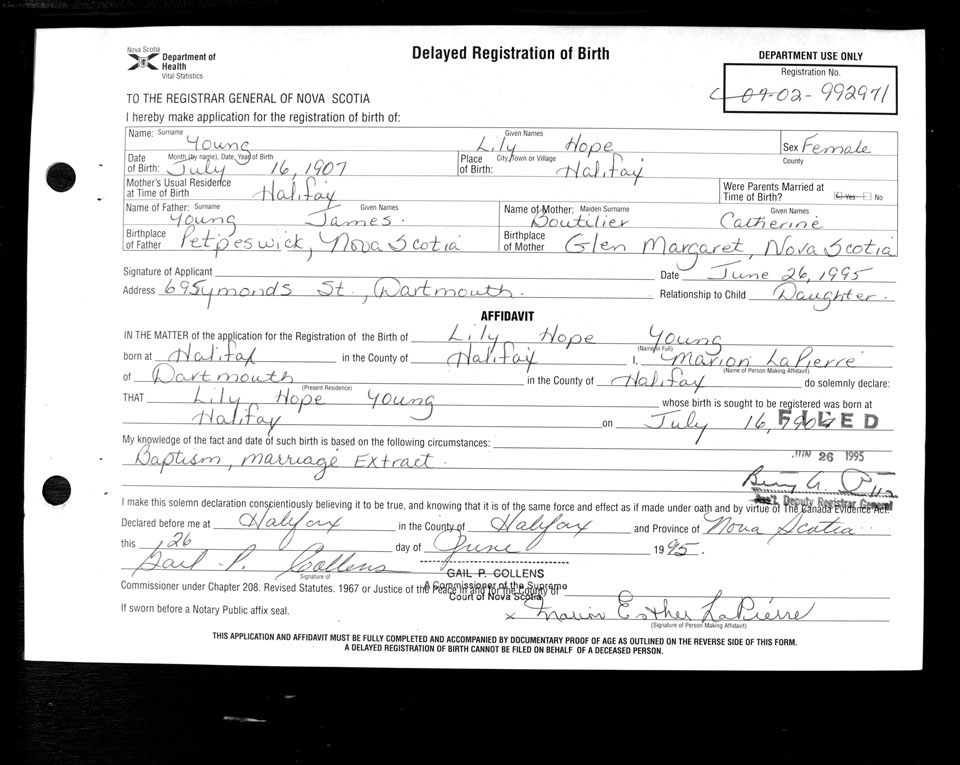 Nova Scotia
Department of
Health
Vital Statistics
Delayed Registration of Birth
DEPARTMENT USE ONLY
Registration No.
C 07-02-992971
TO THE REGISTRAR GENERAL OF NOVA SCOTIA
I hereby make application for the registration of birth of:
Name: Surname Young Given Names Lily Hope Sex Female
Date of Birth: Month (by name), Date, Year of Birth July 16, 1907 Place of Birth: City, Town or Village Halifax County
Mother's Usual Residence at Time of Birth Halifax Were Parents Married at Time of Birth? Yes No
Name of Father: Surname Young Given Names James. Name of Mother: Maiden Surname Boutilier Given Names Catherine
Birthplace of Father Petpeswick, Nova Scotia Birthplace of Mother Glen Margaret, Nova Scotia
Signature of Applicant Date June 26, 1995
Address 69 Symonds St., Dartmouth. Relationship to Child Daughter.
AFFIDAVIT
IN THE MATTER of the application for the Registration of the Birth of Lily Hope Young
(Name in Full)
born at Halifax in the County of Halifax I, Marion LaPierre
(Name of Person Making Affidavit)
of Dartmouth in the County of Halifax do solemnly declare:
(Present Residence)
THAT Lily Hope Young whose birth is sought to be registered was born at
Halifax on July 16, 1907
FILED
My knowledge of the fact and date of such birth is based on the following circumstances:
JUN 26 1995
Baptism, marriage Extract.
Deputy Registrar General
I make this solemn declaration conscientiously believing it to be true, and knowing that it is of the same force and effect as if made under oath and by virtue of The Canada Evidence Act.
Declared before me at Halifax in the County of Halifax and Province of Nova Scotia
this 26 day of June 1995.
Gail P. Collens
Signature of
GAIL P. COLLENS
Commissioner under Chapter 208. Revised Statutes. 1967 or Justice of the Peace in and for the County of
A Commissioner of the Supreme
Court of Nova Scotia
If sworn before a Notary Public affix seal.
x Marion Esther LaPierre
(Signature of Person Making Affidavit)
THIS APPLICATION AND AFFIDAVIT MUST BE FULLY COMPLETED AND ACCOMPANIED BY DOCUMENTARY PROOF OF AGE AS OUTLINED ON THE REVERSE SIDE OF THIS FORM.
A DELAYED REGISTRATION OF BIRTH CANNOT BE FILED ON BEHALF OF A DECEASED PERSON.